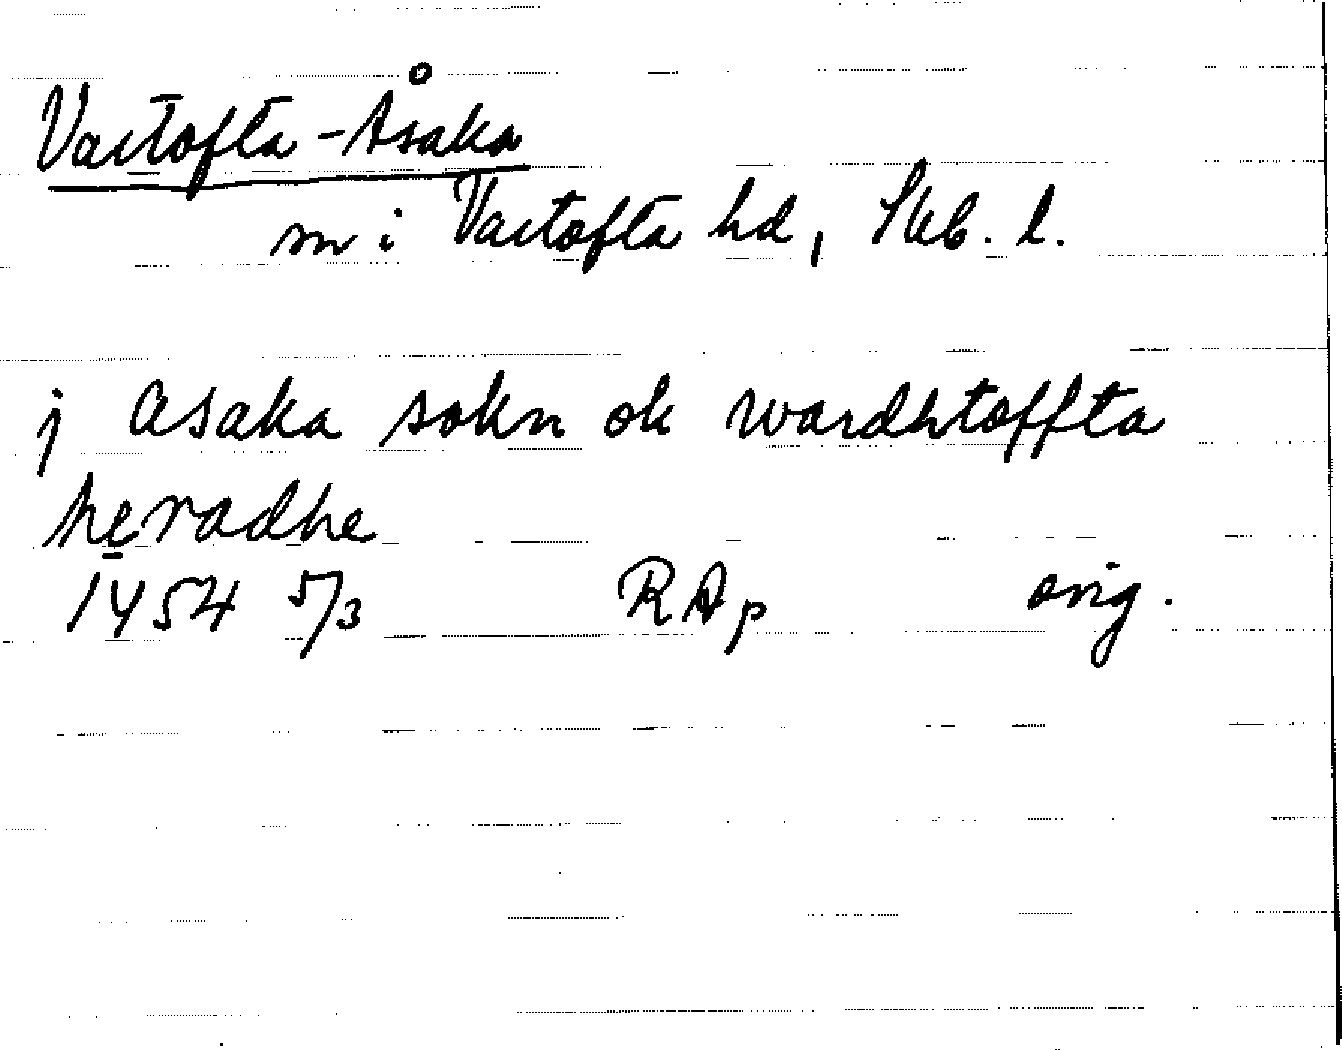 Vartofta-Åsaka
sn i Vartofta hd, Skb. l.
j Asaka sokn ok wardhtoffta
heradhe
1454 5/3 RAp orig.